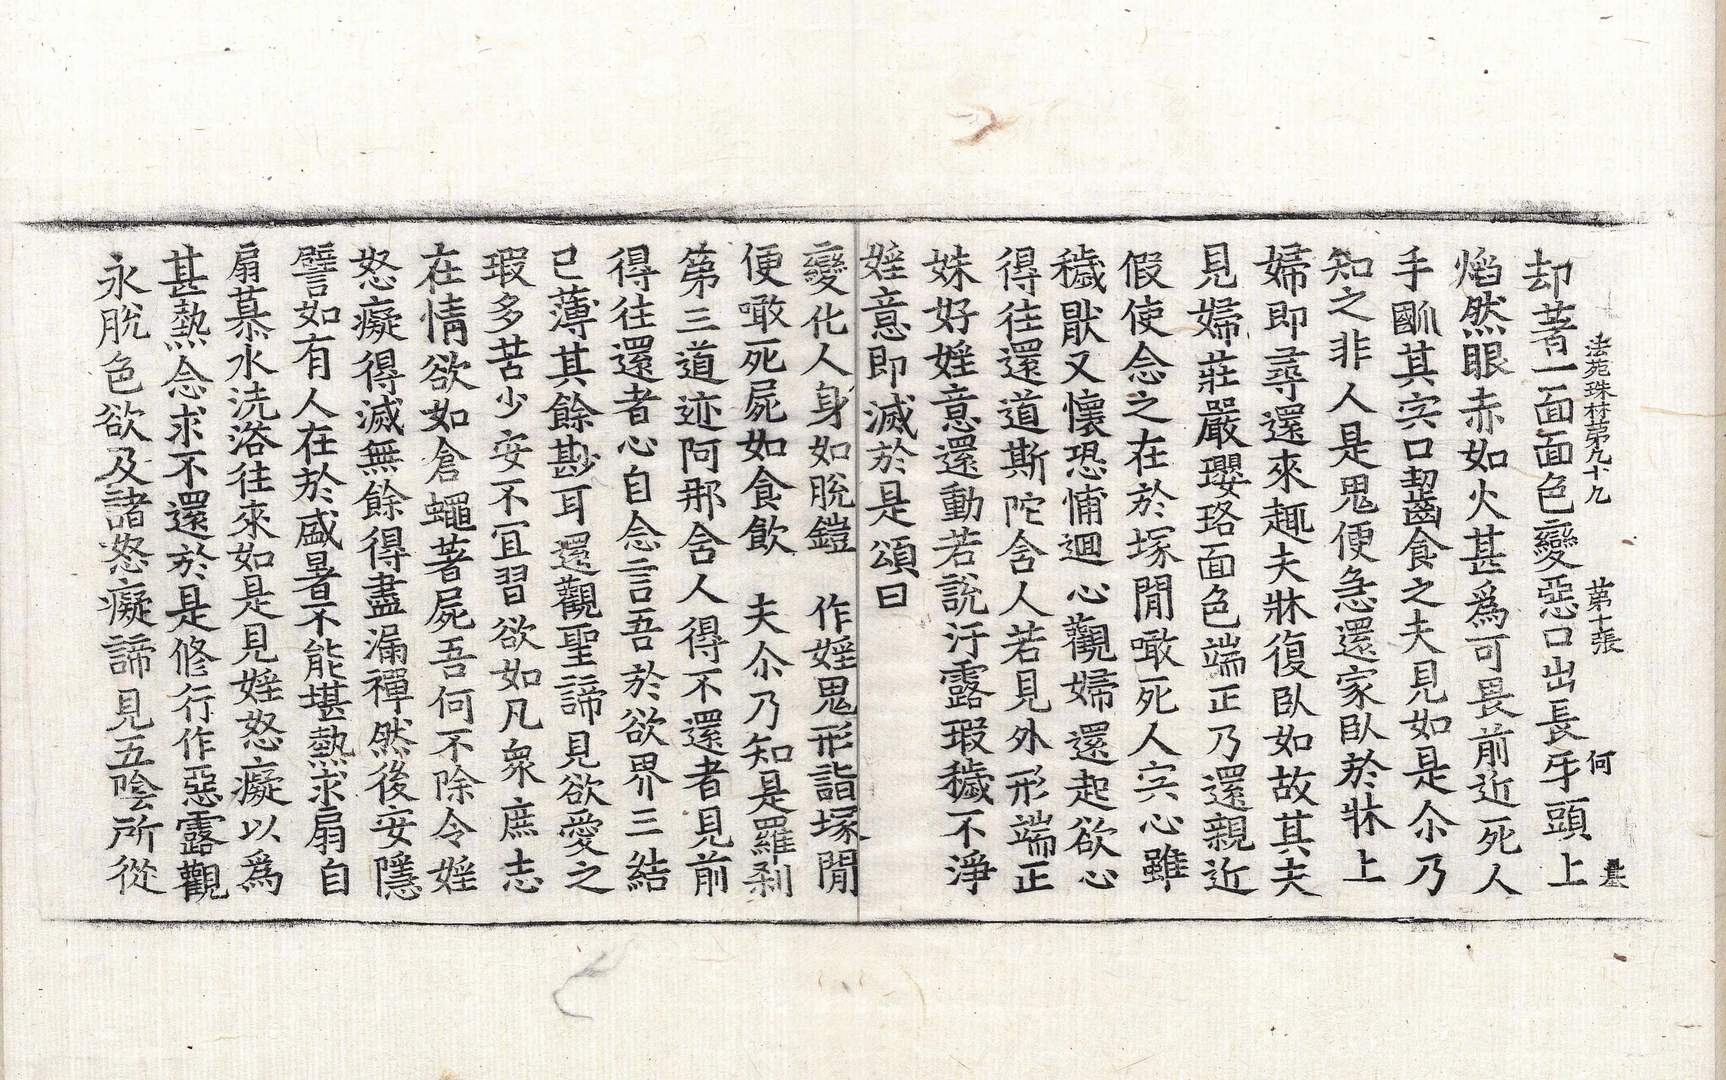 法苑珠林第九十九 第十張 何
却著一面面色變惡口出長牙頭上
焰然眼赤如火甚爲可畏前近死人
手𤔩其宍口齧食之夫見如是尒乃
知之非人是鬼便急還家臥於牀上
婦即尋還來趣夫牀復臥如故其夫
見婦莊嚴瓔珞面色端正乃還親近
假使念之在於塚閒噉死人宍心雖
穢猒又懷恐怖迴心觀婦還起欲心
得往還道斯陀含人若見外形端正
姝好婬意還動若說汙露瑕穢不淨
婬意即滅於是頌曰
變化人身如脫鎧 作婬鬼形詣塚閒
便噉死屍如食飲 夫尒乃知是羅刹
第三道迹阿那含人得不還者見前
得往還者心自念言吾於欲界三結
已薄其餘尠耳還觀聖諦見欲愛之
瑕多苦少安不冝習欲如凡衆庶志
在情欲如倉蠅著屍吾何不除令婬
怒癡得滅無餘得盡漏禪然後安隱
譬如有人在於盛暑不能堪熱求扇自
扇慕水洗浴往來如是見婬怒癡以爲
甚熱念求不還於是修行作惡露觀
永脫色欲及諸怒癡諦見五陰所從